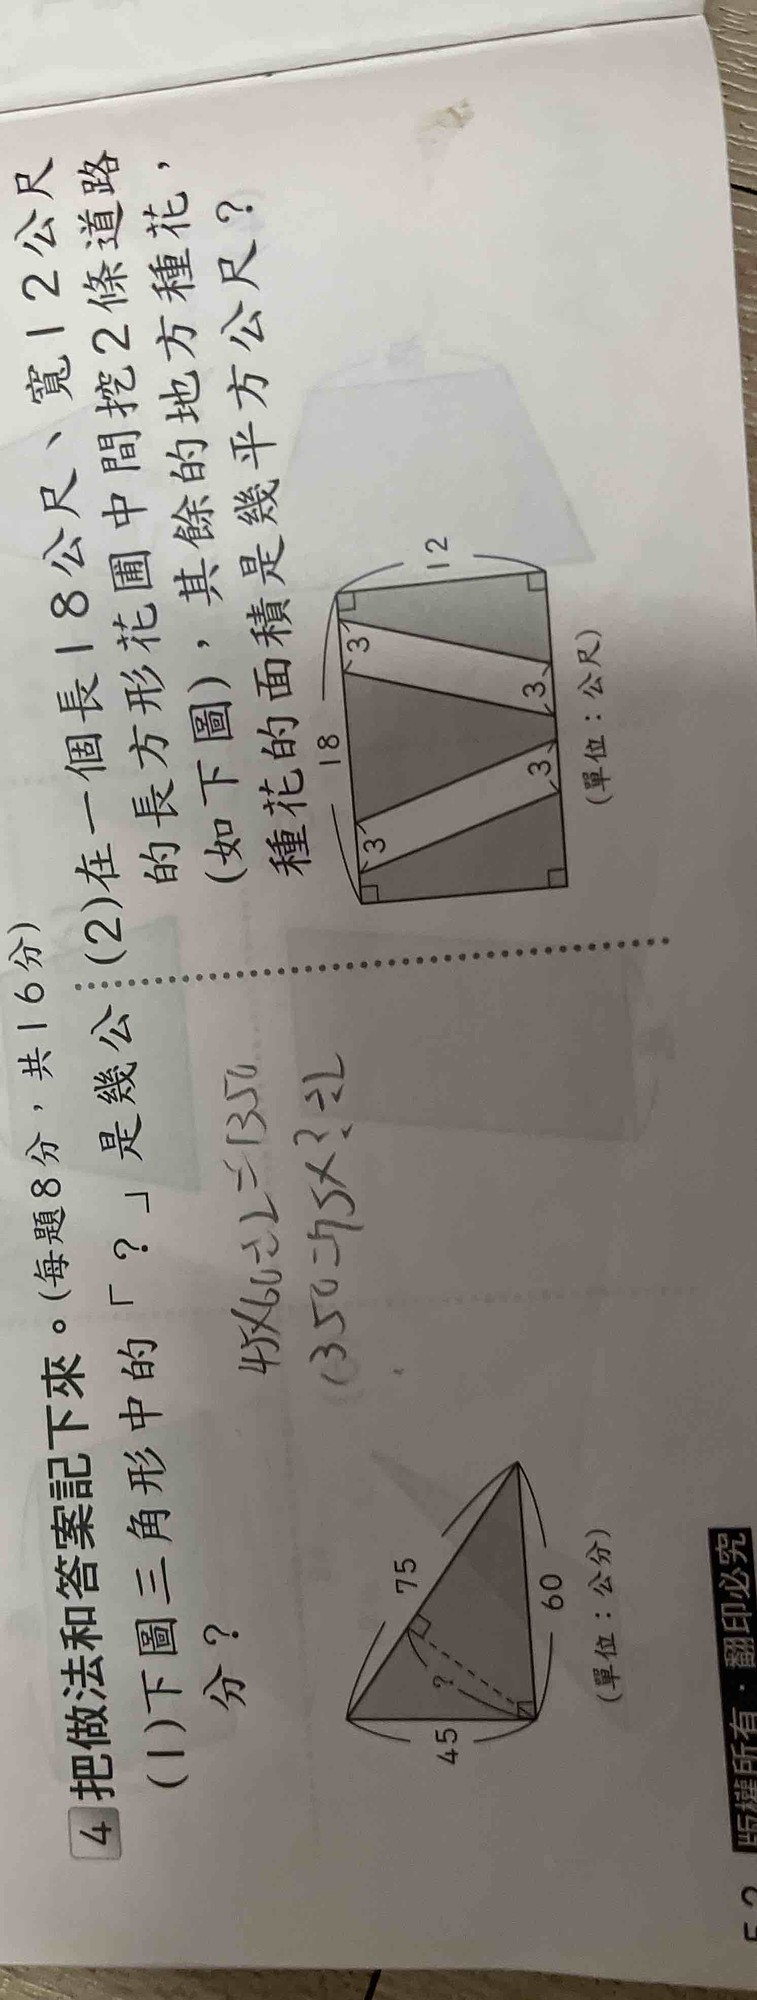 4 把做法和答案記下來。(每題8分,共16分)
(1)下圖三角形中的「?」是幾公
分?
45×60÷2=1350
1350=75×?÷2
75
?
45
60
(單位:公分)
(2)在一個長18公尺、寬12公尺
的長方形花圃中間挖2條道路
(如下圖),其餘的地方種花,
種花的面積是幾平方公尺?
18
3
3
12
3
3
(單位:公尺)
版權所有・翻印必究